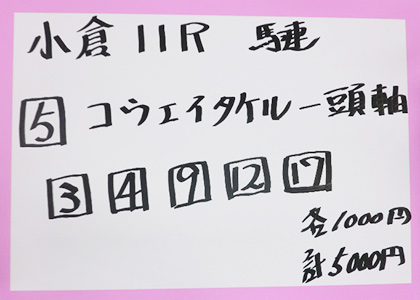 小倉11R 馬連
5 コウエイタケル一頭軸
3 4 9 12 17
各1000円
計5000円